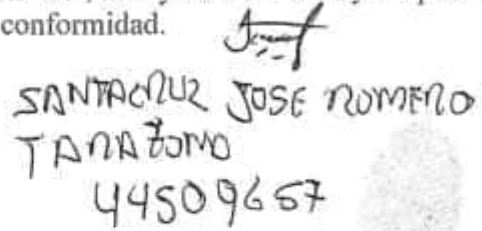 conformidad.
SANTACRUZ JOSE ROMERO
TARAZONA
44509657